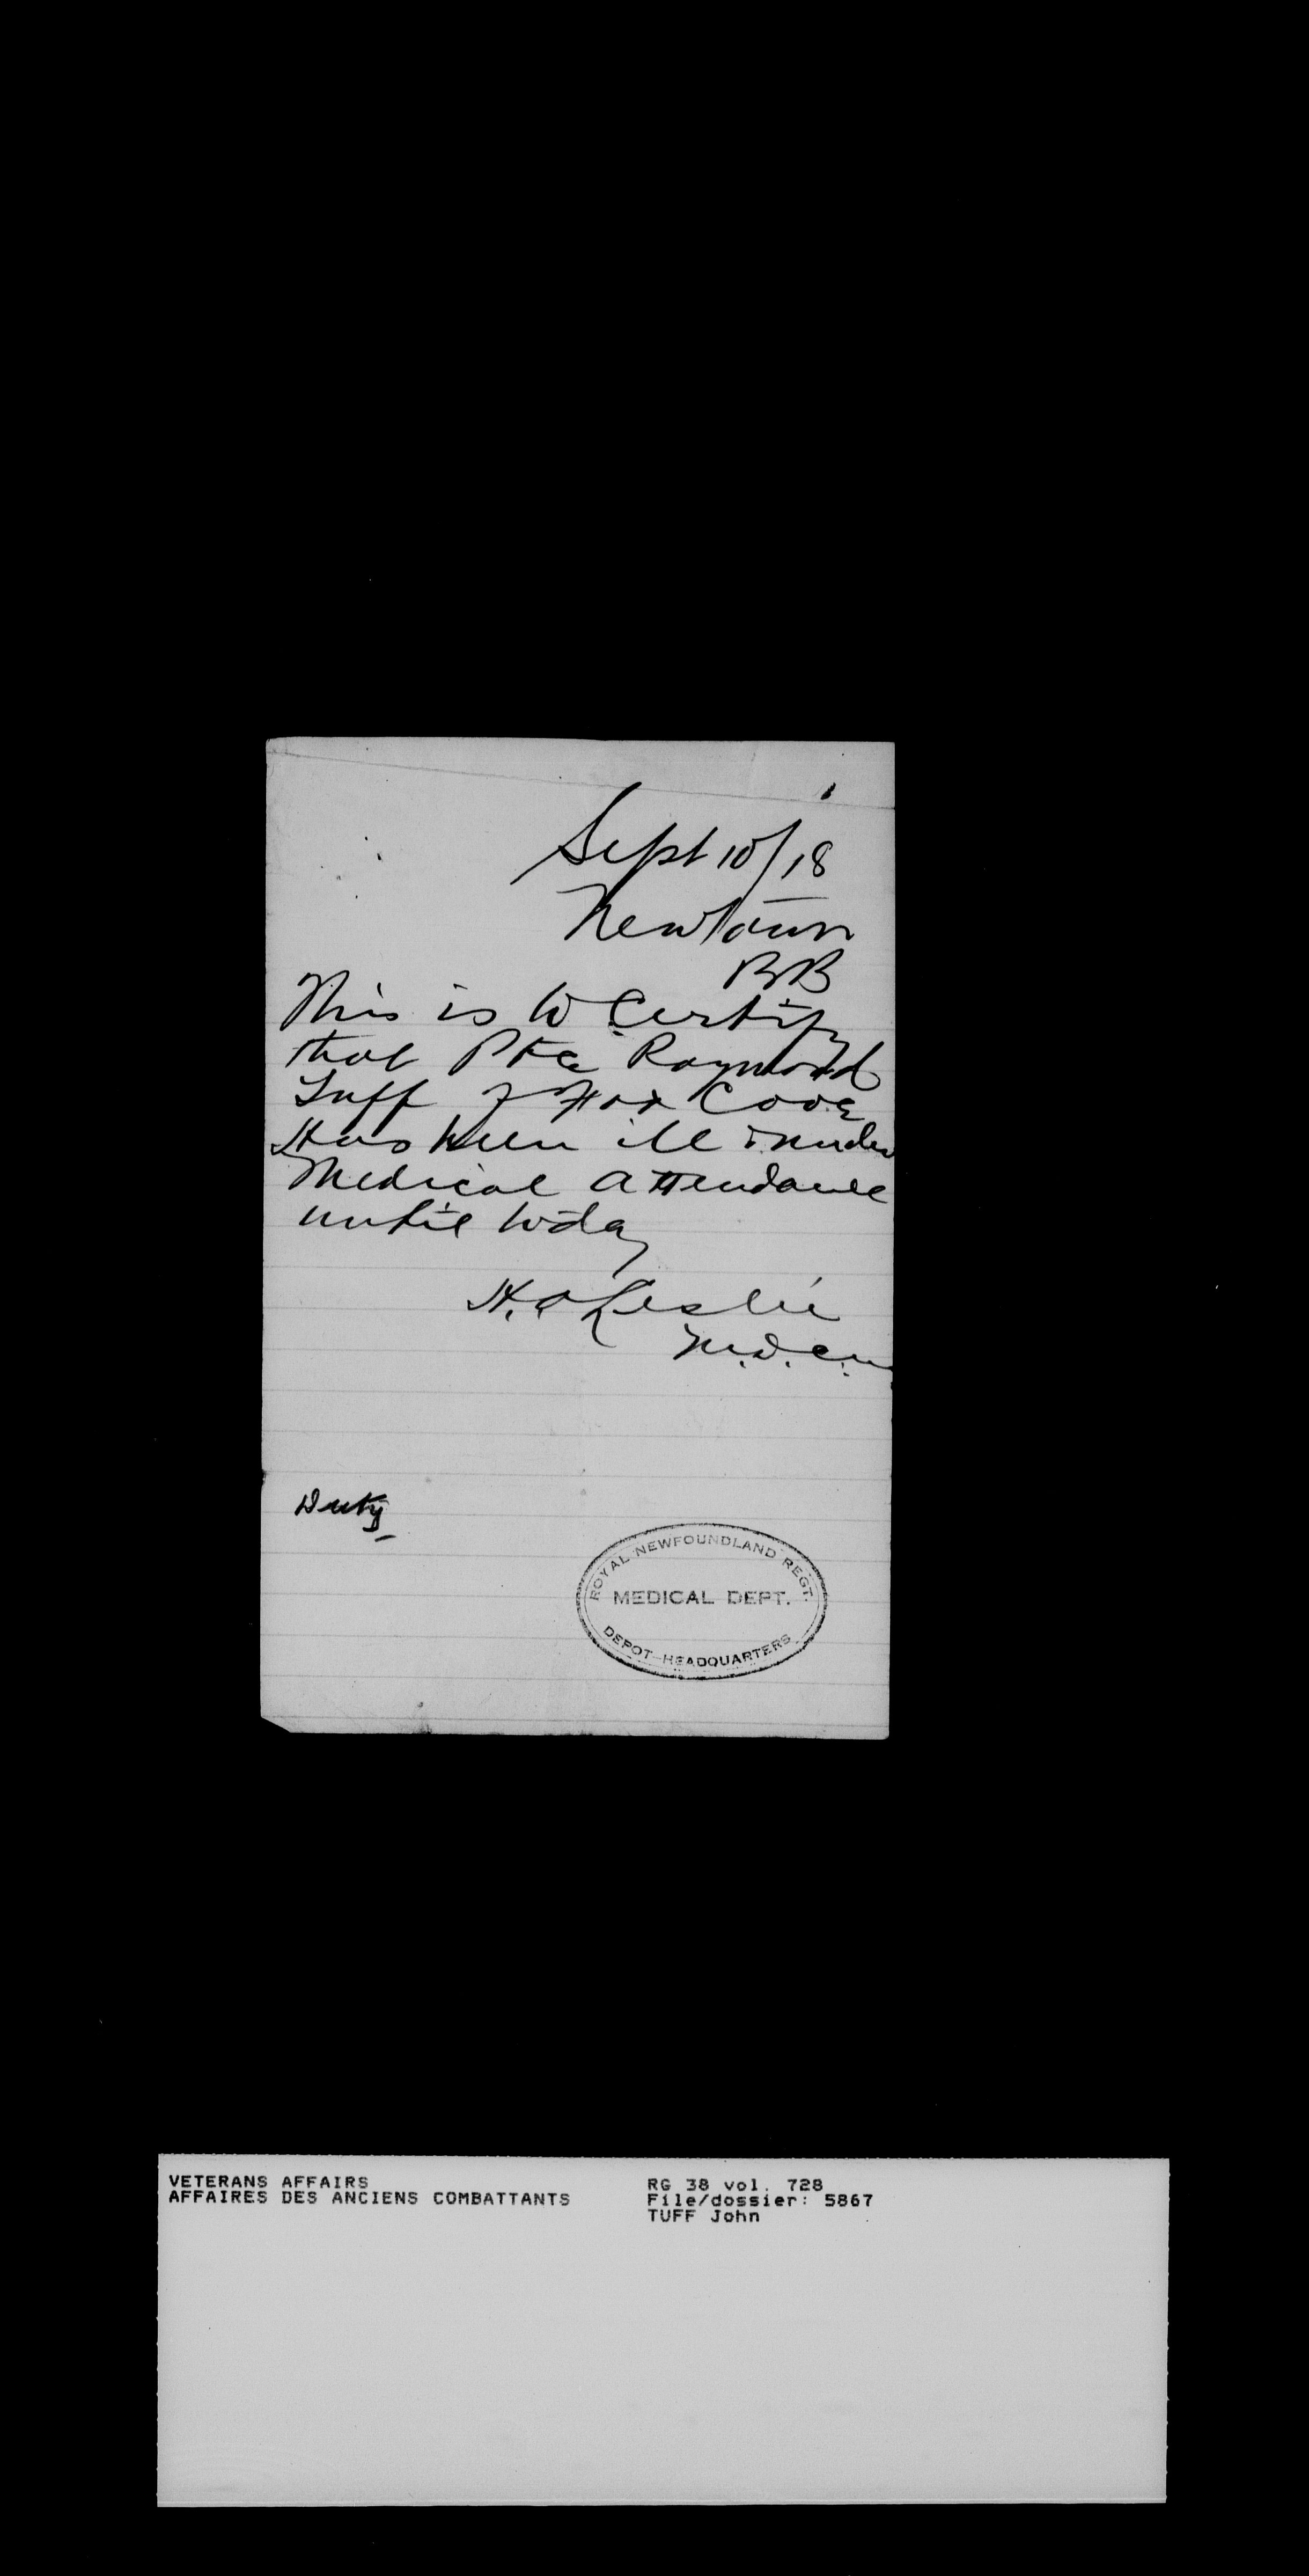 Sept 10/18
Newtown
BB
This is to Certify
that Pte Raymond
Tuff of Fox Cove
Has been ill & under
Medical Attendance
until today
H. O Leslie
M.D.C.M.
Duty
ROYAL NEWFOUNDLAND REGT.
MEDICAL DEPT.
DEPOT HEADQUARTERS
VETERANS AFFAIRS
AFFAIRES DES ANCIENS COMBATTANTS
RG 38 vol. 728
File/dossier: 5867
TUFF John